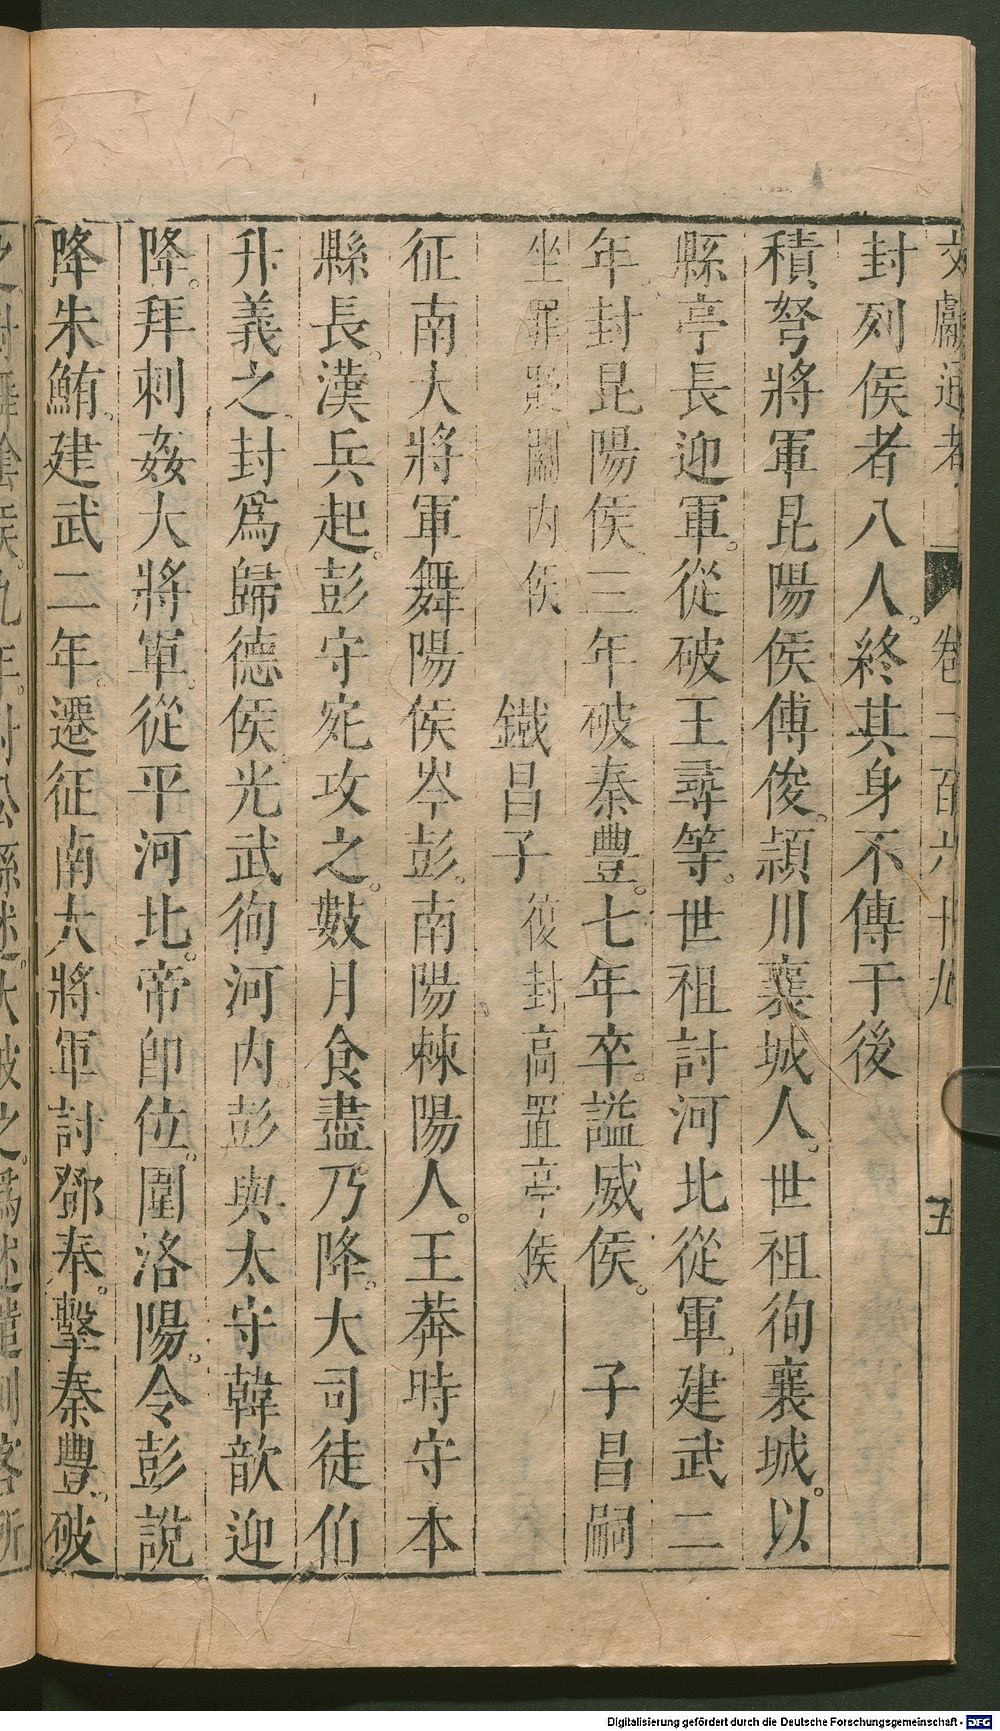 文獻通考 卷二百六十九 五
封列侯者八人。終其身不傳于後
積弩將軍昆陽侯傅俊。潁川襄城人。世祖徇襄城。以
縣亭長迎軍。從破王尋等。世祖討河北從軍。建武二
年。封昆陽侯三年破秦豐。七年卒。謚威侯。 子昌嗣
坐罪貶關内侯 鐵昌子 復封高置亭侯
征南大將軍舞陽侯岑彭。南陽棘陽人。王莽時守本
縣長。漢兵起。彭守宛攻之。數月食盡乃降。大司徒伯
升義之封爲歸德侯光武徇河内。彭與太守韓歆迎
降。拜刺姦大將軍。從平河北。帝卽位。圍洛陽。令彭說
降朱鮪。建武二年。遷征南大將軍討鄧奉。擊秦豐。破